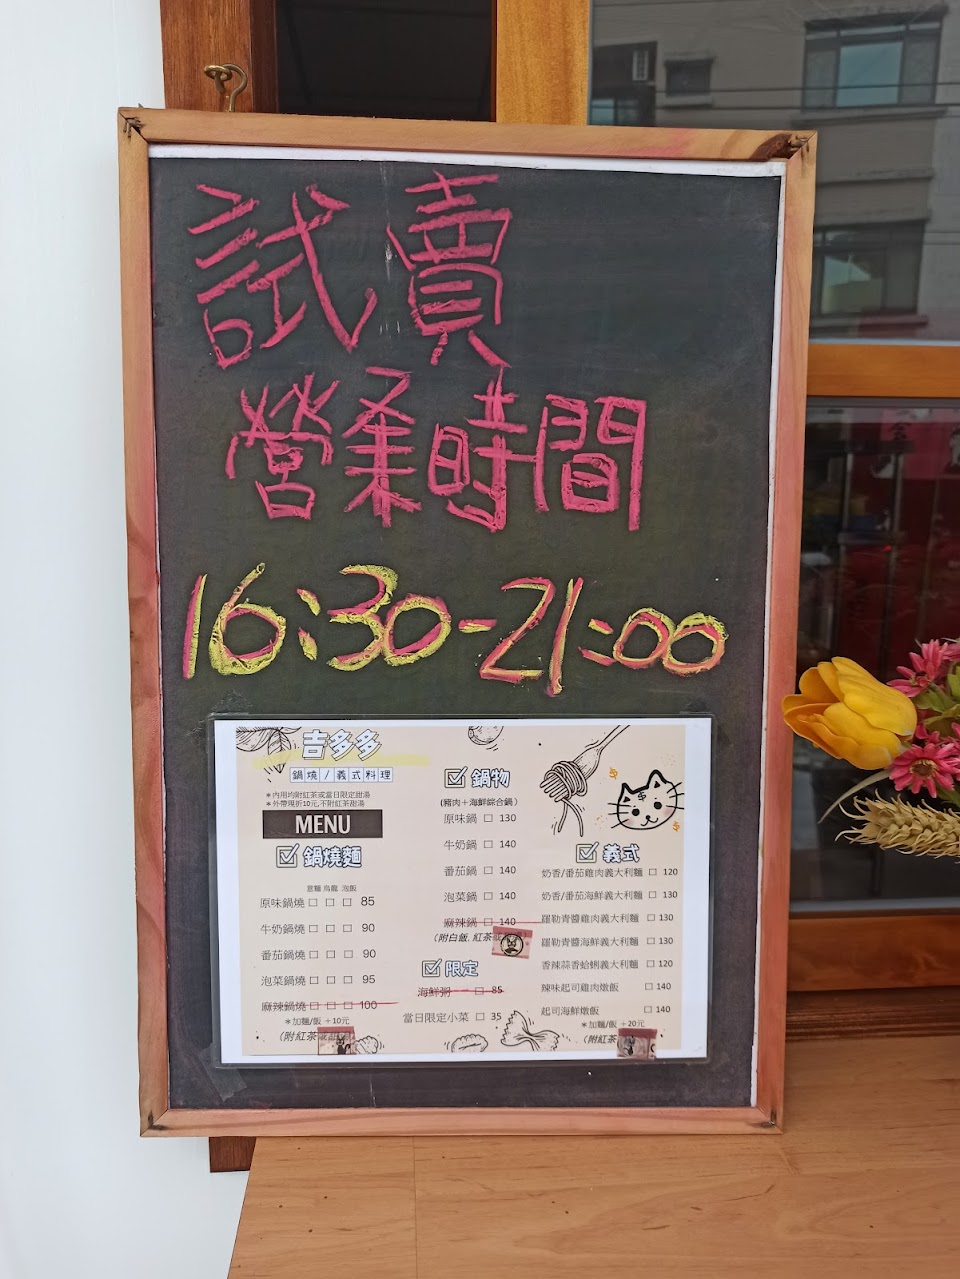 試賣
營業時間
16:30-21:00
吉多多
鍋燒/義式料理
*內用均附紅茶或當日限定甜湯
*外帶現折10元,不附紅茶甜湯
MENU
☑ 鍋燒麵
意麵 烏龍 泡飯
原味鍋燒 □ □ □ 85
牛奶鍋燒 □ □ □ 90
番茄鍋燒 □ □ □ 90
泡菜鍋燒 □ □ □ 95
麻辣鍋燒 □ □ □ 100
*加麵/飯 +10元
(附紅茶
☑ 鍋物
(豬肉+海鮮綜合鍋)
原味鍋 □ 130
牛奶鍋 □ 140
番茄鍋 □ 140
泡菜鍋 □ 140
麻辣鍋 □ 140
(附白飯, 紅茶
☑ 限定
海鮮粥 □ 85
當日限定小菜 □ 35
☑ 義式
奶香/番茄雞肉義大利麵 □ 120
奶香/番茄海鮮義大利麵 □ 130
羅勒青醬雞肉義大利麵 □ 130
羅勒青醬海鮮義大利麵 □ 130
香辣蒜香蛤蜊義大利麵 □ 120
辣味起司雞肉燉飯 □ 140
起司海鮮燉飯 □ 140
*加麵/飯 +20元
(附紅茶